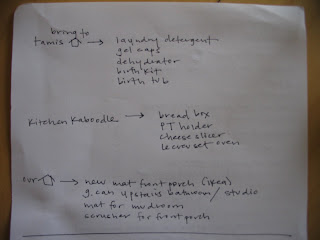 bring to
tamis → laundry detergent
gel caps
dehydrater
birth kit
birth tub
Kitchen Kaboodle → bread box
PT holder
cheese slicer
le creuset oven
our → new mat front porch (ikea)
g. can upstairs bathroom / studio
mat for mudroom
scrusher for front porch